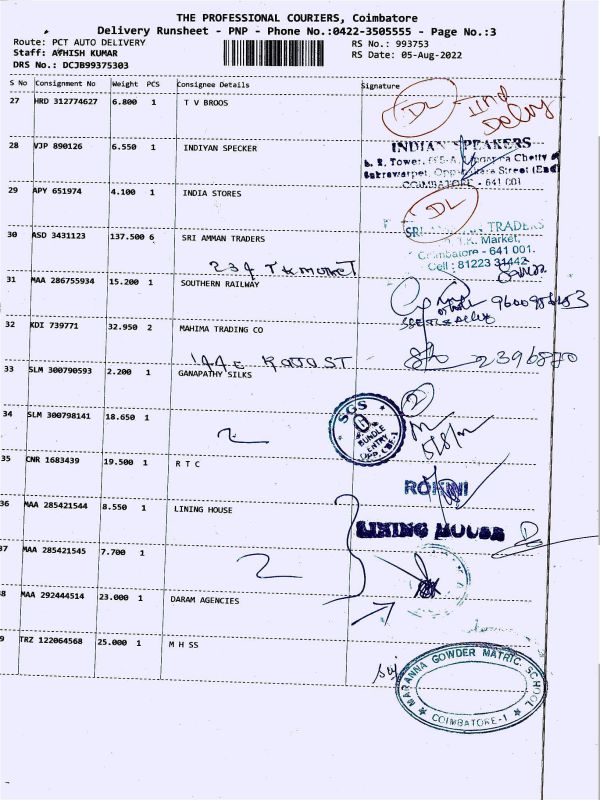 THE PROFESSIONAL COURIERS, Coimbatore
Delivery Runsheet - PNP - Phone No.:0422-3505555 - Page No.:3
Route: PCT AUTO DELIVERY RS No.: 993753
Staff: ATHISH KUMAR RS Date: 05-Aug-2022
DRS No.: DCJB99375303
S No Consignment No Weight PCS Consignee Details Signature
27 HRD 312774627 6.800 1 T V BROOS DL
28 VJP 890126 6.550 1 INDIYAN SPECKER INDIAN SPEAKERS
COIMBATORE - 641 001
29 APY 651974 4.100 1 INDIA STORES DL
30 ASD 3431123 137.500 6 SRI AMMAN TRADERS TRADERS
T.K. Market,
Coimbatore - 641 001.
Cell : 81223 31442
234 T k market
31 MAA 286755934 15.200 1 SOUTHERN RAILWAY
32 KDI 739771 32.950 2 MAHIMA TRADING CO
2396870
33 SLM 300790593 2.200 1 GANAPATHY SILKS
2
34 SLM 300798141 18.650 1 SGS
BUNDLE
ENTRY
35 CNR 1683439 19.500 1 R T C
ROHINI
36 MAA 285421544 8.550 1 LINING HOUSE LINING HOUSE
37 MAA 285421545 7.700 1
38 MAA 292444514 23.000 1 DARAM AGENCIES
39 TRZ 122064568 25.000 1 M H SS
MARANNA GOWDER MATRIC. SCHOOL
COIMBATORE-1